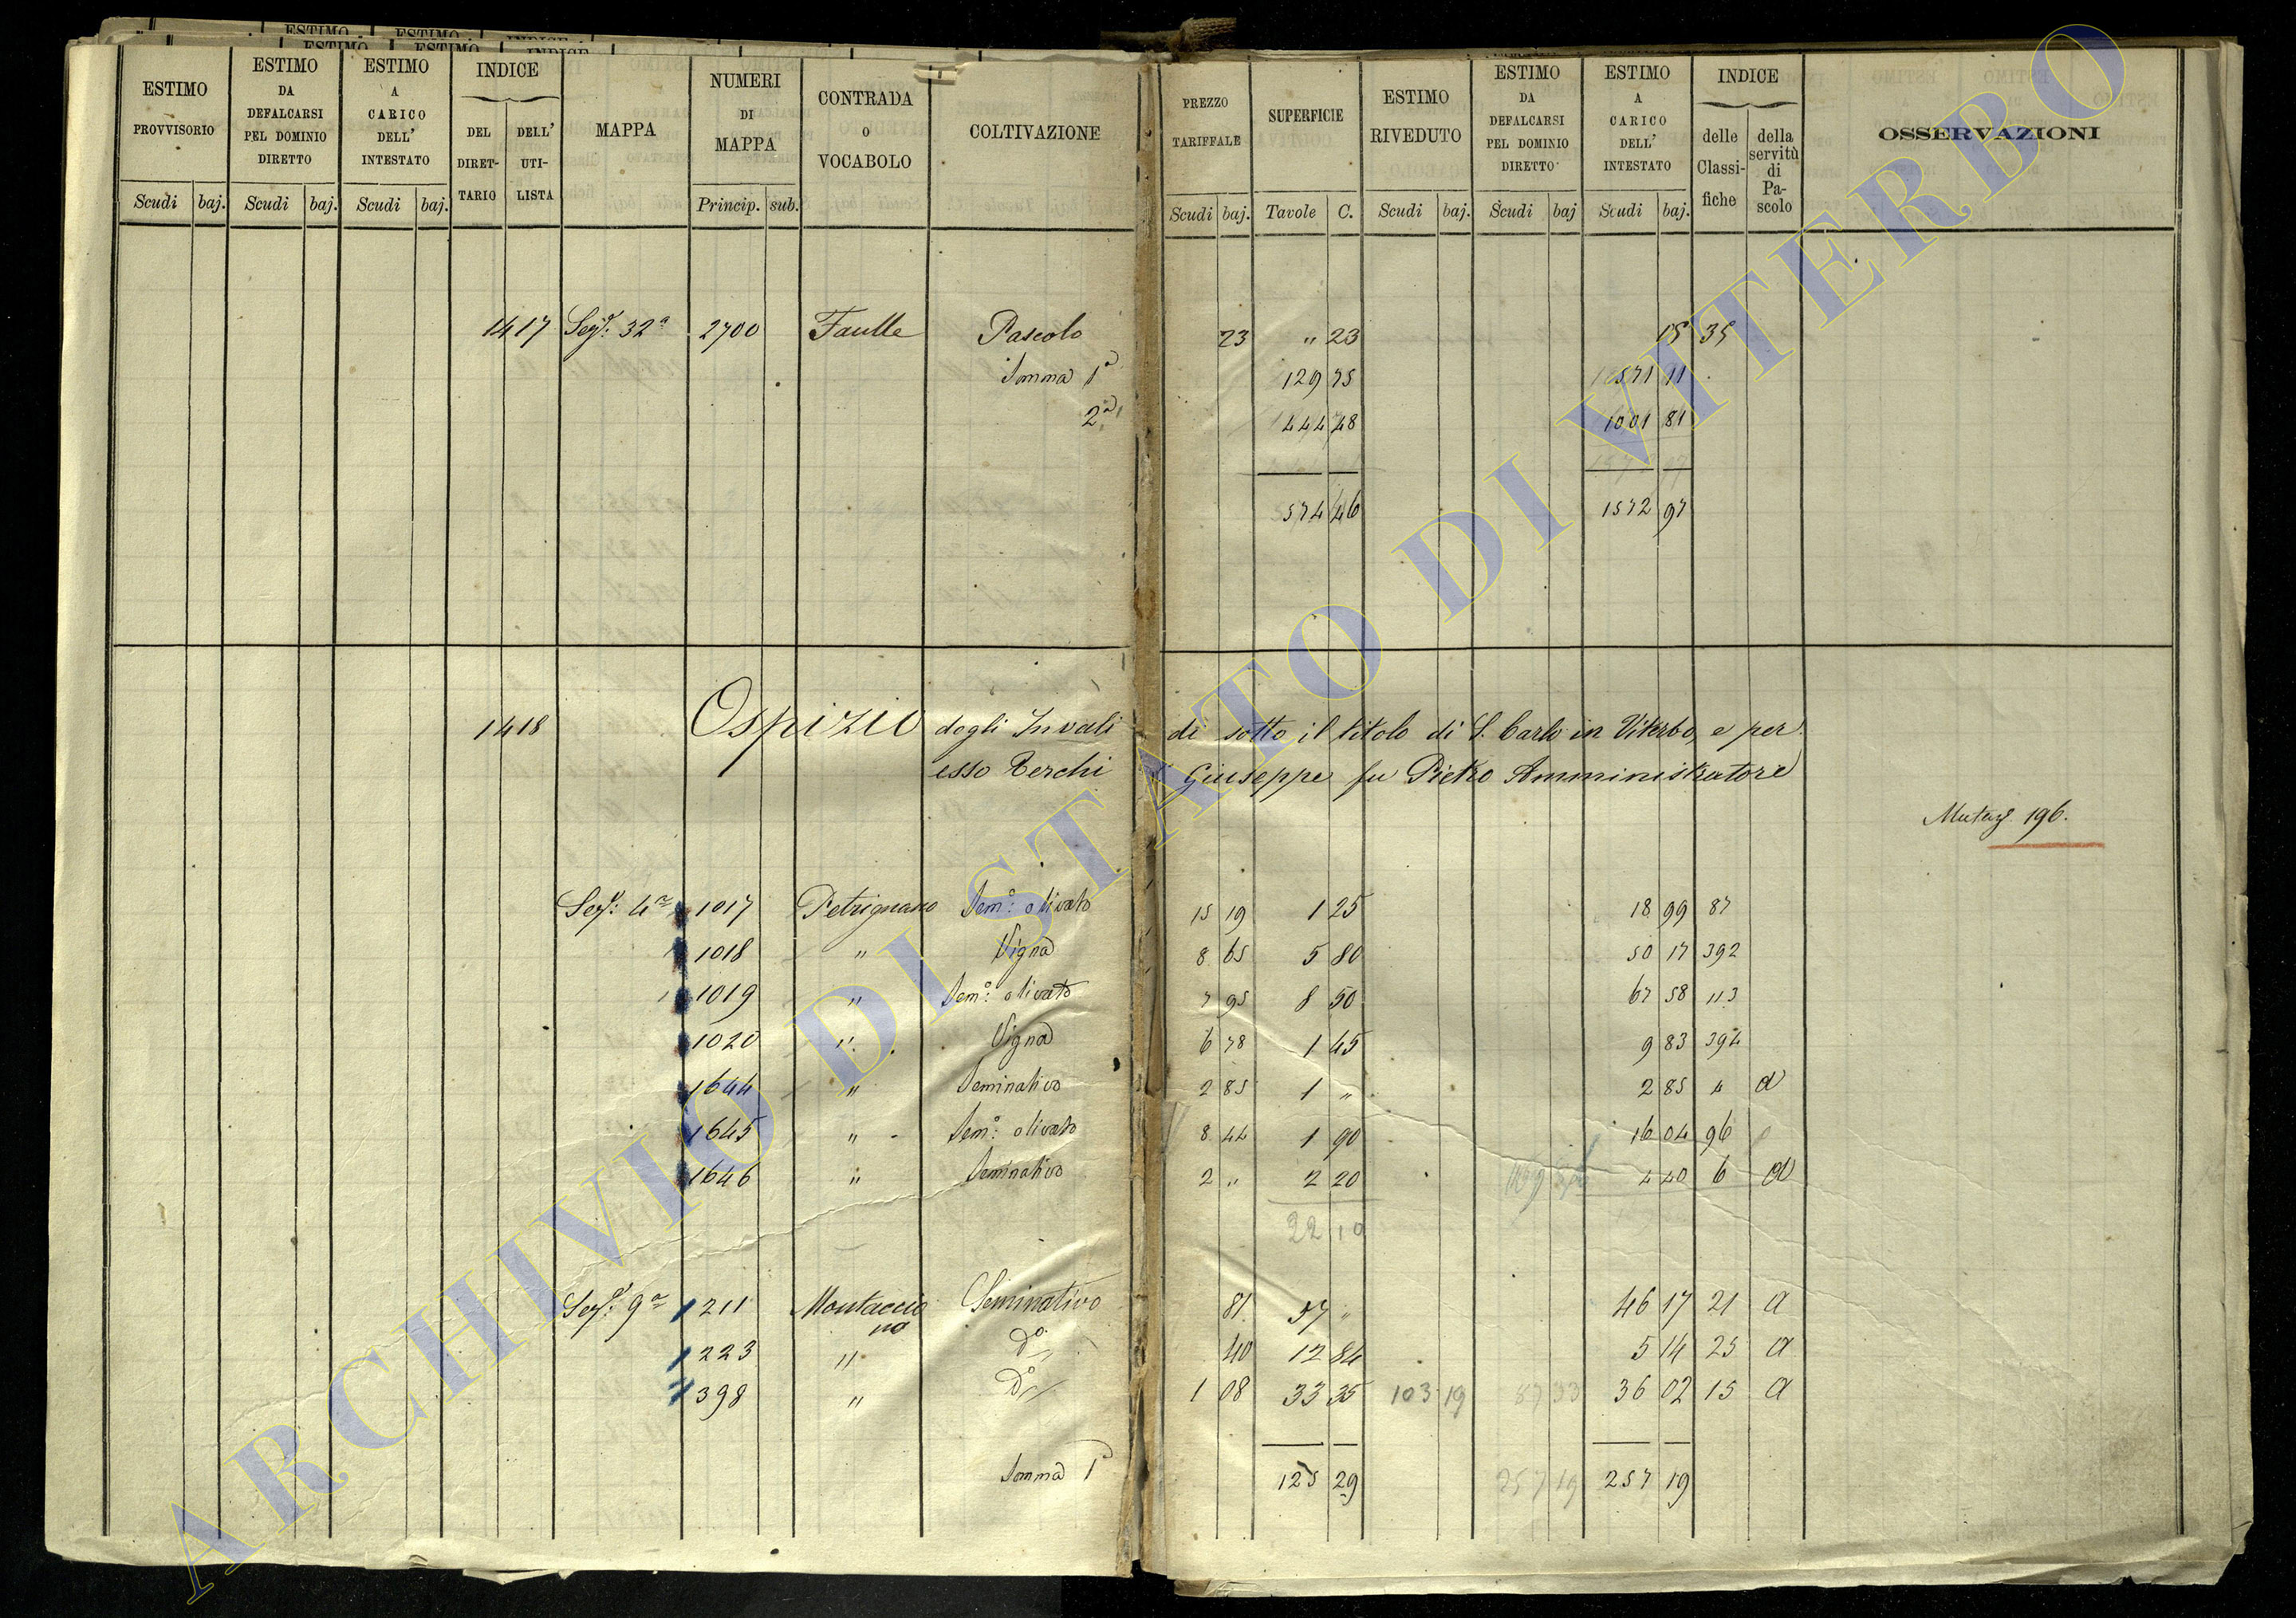 ESTIMO ESTIMO INDICE
ESTIMO ESTIMO INDICE
ESTIMO PROVVISORIO
ESTIMO DA DEFALCARSI PEL DOMINIO DIRETTO
ESTIMO A CARICO DELL' INTESTATO
INDICE
DEL DIRET-TARIO
DELL' UTI-LISTA
MAPPA
NUMERI DI MAPPA
CONTRADA O VOCABOLO
COLTIVAZIONE
PREZZO TARIFFALE
SUPERFICIE
ESTIMO RIVEDUTO
ESTIMO DA DEFALCARSI PEL DOMINIO DIRETTO
ESTIMO A CARICO DELL' INTESTATO
INDICE
delle Classi-fiche
della servitù di Pa-scolo
OSSERVAZIONI
Scudi baj. Scudi baj. Scudi baj. Princip. sub. Scudi baj. Tavole C. Scudi baj. Scudi baj Scudi baj.
1417 Sez: 32a 2700 Faulle Pascolo 23 " 23 15 35
Somma 1a 129 75 571 11
2a 444 48 1001 81
574 46 1572 97
1418 Ospizio degli Invali di sotto il titolo di S. Carlo in Viterbo, e per
esso Zerchi Giuseppe fu Pietro Amministratore
Mutaz 196.
Sez: 4a 1017 Petrignano Sem:o olivato 15 19 1 25 18 99 87
1018 " Vigna 8 65 5 80 50 17 392
1019 " Sem:o olivato 7 95 8 50 67 58 113
1020 " Vigna 6 78 1 45 9 83 394
1644 " Seminativo 2 85 1 " 2 85 4 a
1645 " Sem:o olivato 8 44 1 90 16 04 96
1646 " Seminativo 2 " 2 20 4 40 6 a
22 10
Sez: 9a 211 Montaccio Seminativo 81 57 " 46 17 21 a
no
223 " Do 40 12 84 5 14 25 a
398 " Do 1 08 33 35 103 19 87 33 36 02 15 a
Somma 1a 125 29 257 19 257 19
ARCHIVIO DI STATO DI VITERBO